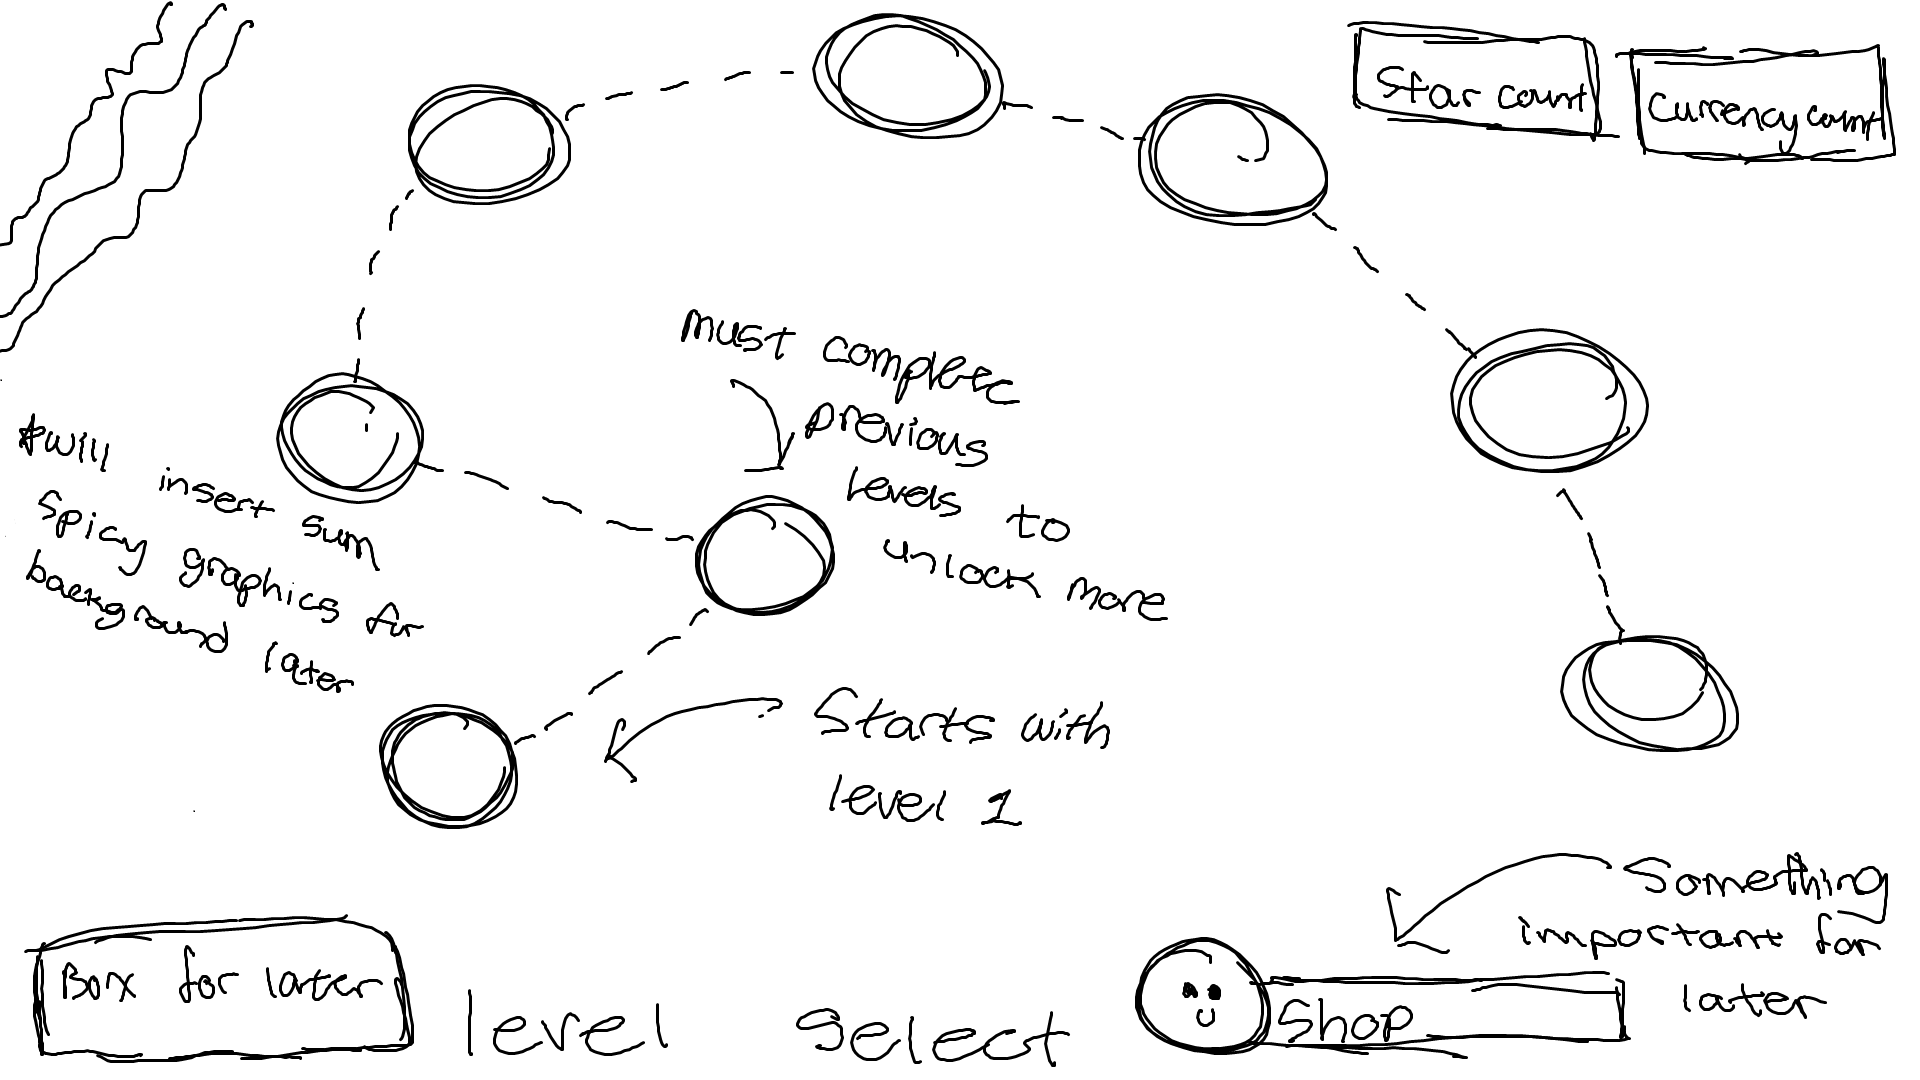 Star count
Currency count
must complete
previous
levels to
unlock more
*will insert sum
spicy graphics for
background later
Starts with
level 1
Something
important for
later
Box for later
level select
Shop